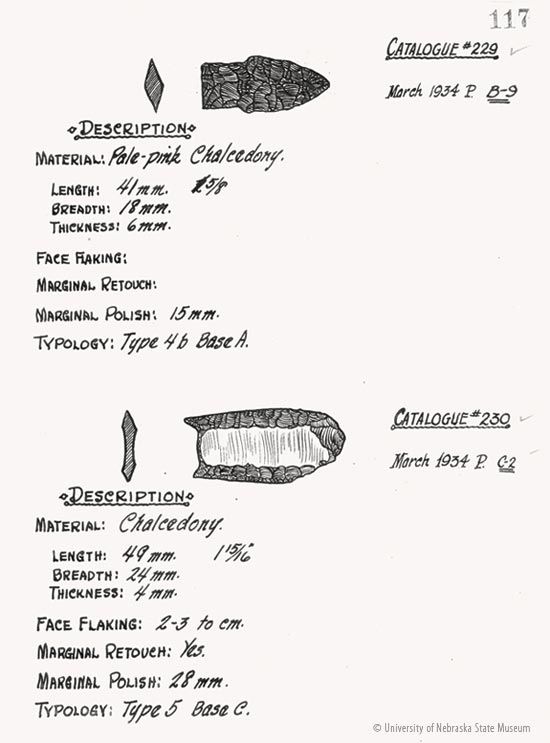 117
CATALOGUE #229
March 1934 P. B-9
DESCRIPTION
MATERIAL: Pale-pink Chalcedony.
LENGTH: 41 mm. 1 5/8
BREADTH: 18 mm.
THICKNESS: 6 mm.
FACE FLAKING:
MARGINAL RETOUCH:
MARGINAL POLISH: 15 mm.
TYPOLOGY: Type 4b Base A.
CATALOGUE #230
March 1934 P. C-2
DESCRIPTION
MATERIAL: Chalcedony.
LENGTH: 49 mm. 1 15/16"
BREADTH: 24 mm.
THICKNESS: 4 mm.
FACE FLAKING: 2-3 to cm.
MARGINAL RETOUCH: Yes.
MARGINAL POLISH: 28 mm.
TYPOLOGY: Type 5 Base C.
© University of Nebraska State Museum